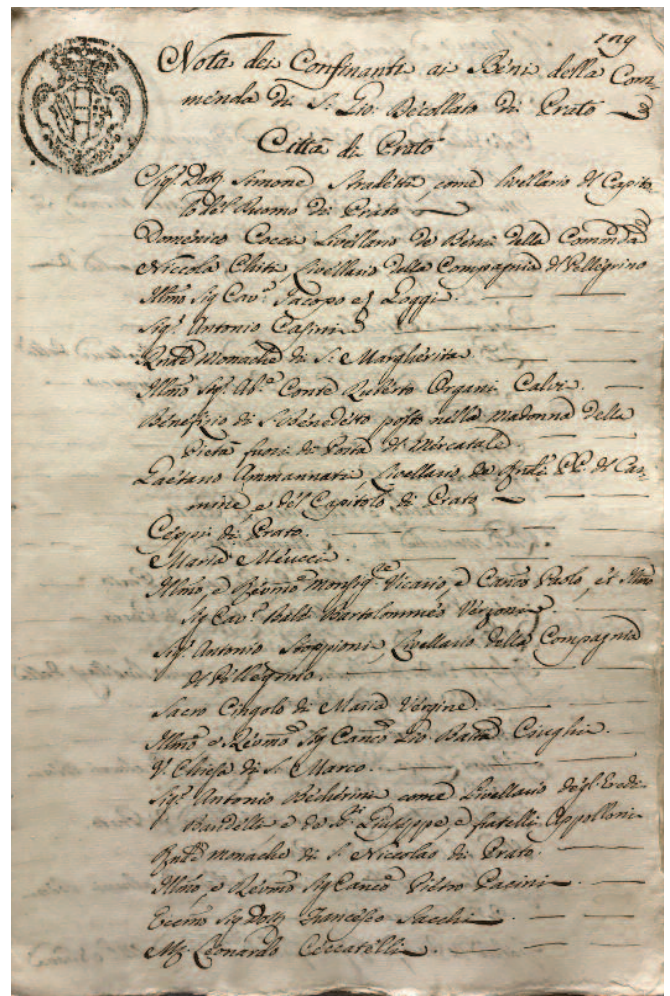 129
Nota dei Confinanti ai Beni della Com-
menda di S. Gio. Decollato di Prato
Città di Prato
Sig.r Dott.r Simone come livellario del Capito-
lo del Duomo di Prato
Domenico Cocci Livellario de Beni della Commenda
Niccola Chiti, Livellario della Compagnia del Pellegrino
Illmo Sig Cav.e Jacopo Leggi
Sig.r Antonio Casini
Rnde Monache di S. Margherita
Illmo Sig.r Ab.e Conte Ruberto Organi Calvi
Benefizio di S. Benedetto posto nella Madonna della
Pietà fuori di Porta del Mercatale
Gaetano Ammannati, Livellario de PP. del Car-
mine, e del Capitolo di Prato
Ceppi di Prato
Maria Meucci
Illmo, e Revmo Monsig.re Vicario, e Canco Paolo, et Illmo
Sig Cav.e Bartolommeo Verzoni
Sig.r Antonio Stoppioni, Livellario della Compagnia
del Pellegrino
Sacro Cingolo di Maria Vergine
Illmo e Revmo Sig Canco Gio Batta Ciughi
V. Chiesa di S. Marco
Sig.r Antonio Becherini come Livellario degl'Eredi
Bandelli e de Giuseppe, e fratelli Appolloni
Rnde Monache di S. Niccolao di Prato
Illmo, e Revmo Sig Canco Pietro Pacini
Eccmo Sig Dott.r Francesco Sacchi
Leonardo Ceccatelli